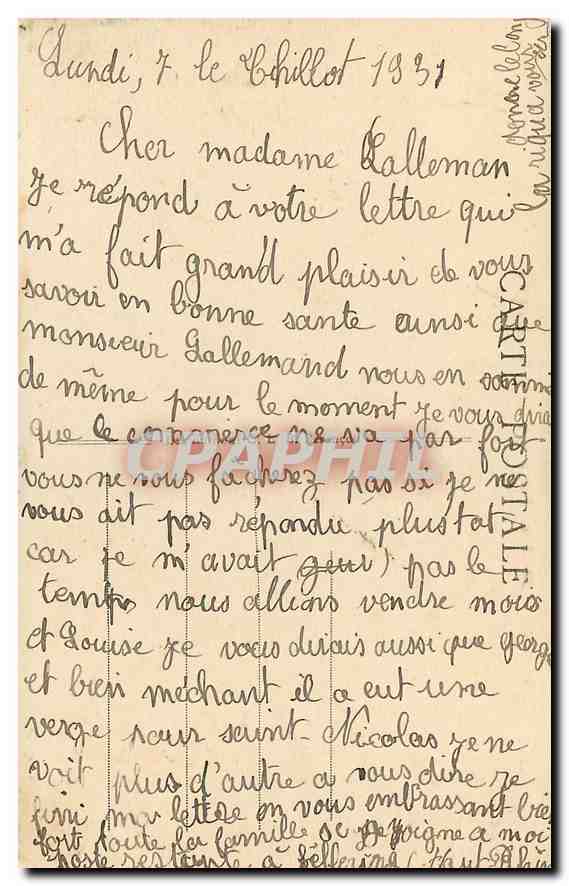 Lundi, 7 le Thillot 1931
Cher madame Lalleman
Je répond à votre lettre qui
m'a fait grand plaisir de vous
savoir en bonne sante ainsi que
monsieur Lallemand nous en somme
de même pour le moment je vous dirai
que le commerce ne va pas fort
vous ne vous facherez pas si je ne
vous ait pas répondu plustat
car je m'avait pas le
temps nous allions vendre mois
et Louise je vous dirais aussi que george
et bien méchant il a eut une
verge pour saint-Nicolas je ne
voit plus d'autre a vous dire je
fini ma lettre en vous embrassant bien
fort toute la famille se joigne a moi
poste restante à fellering (Haut Rhin
CARTE POSTALE
CPAPHIL